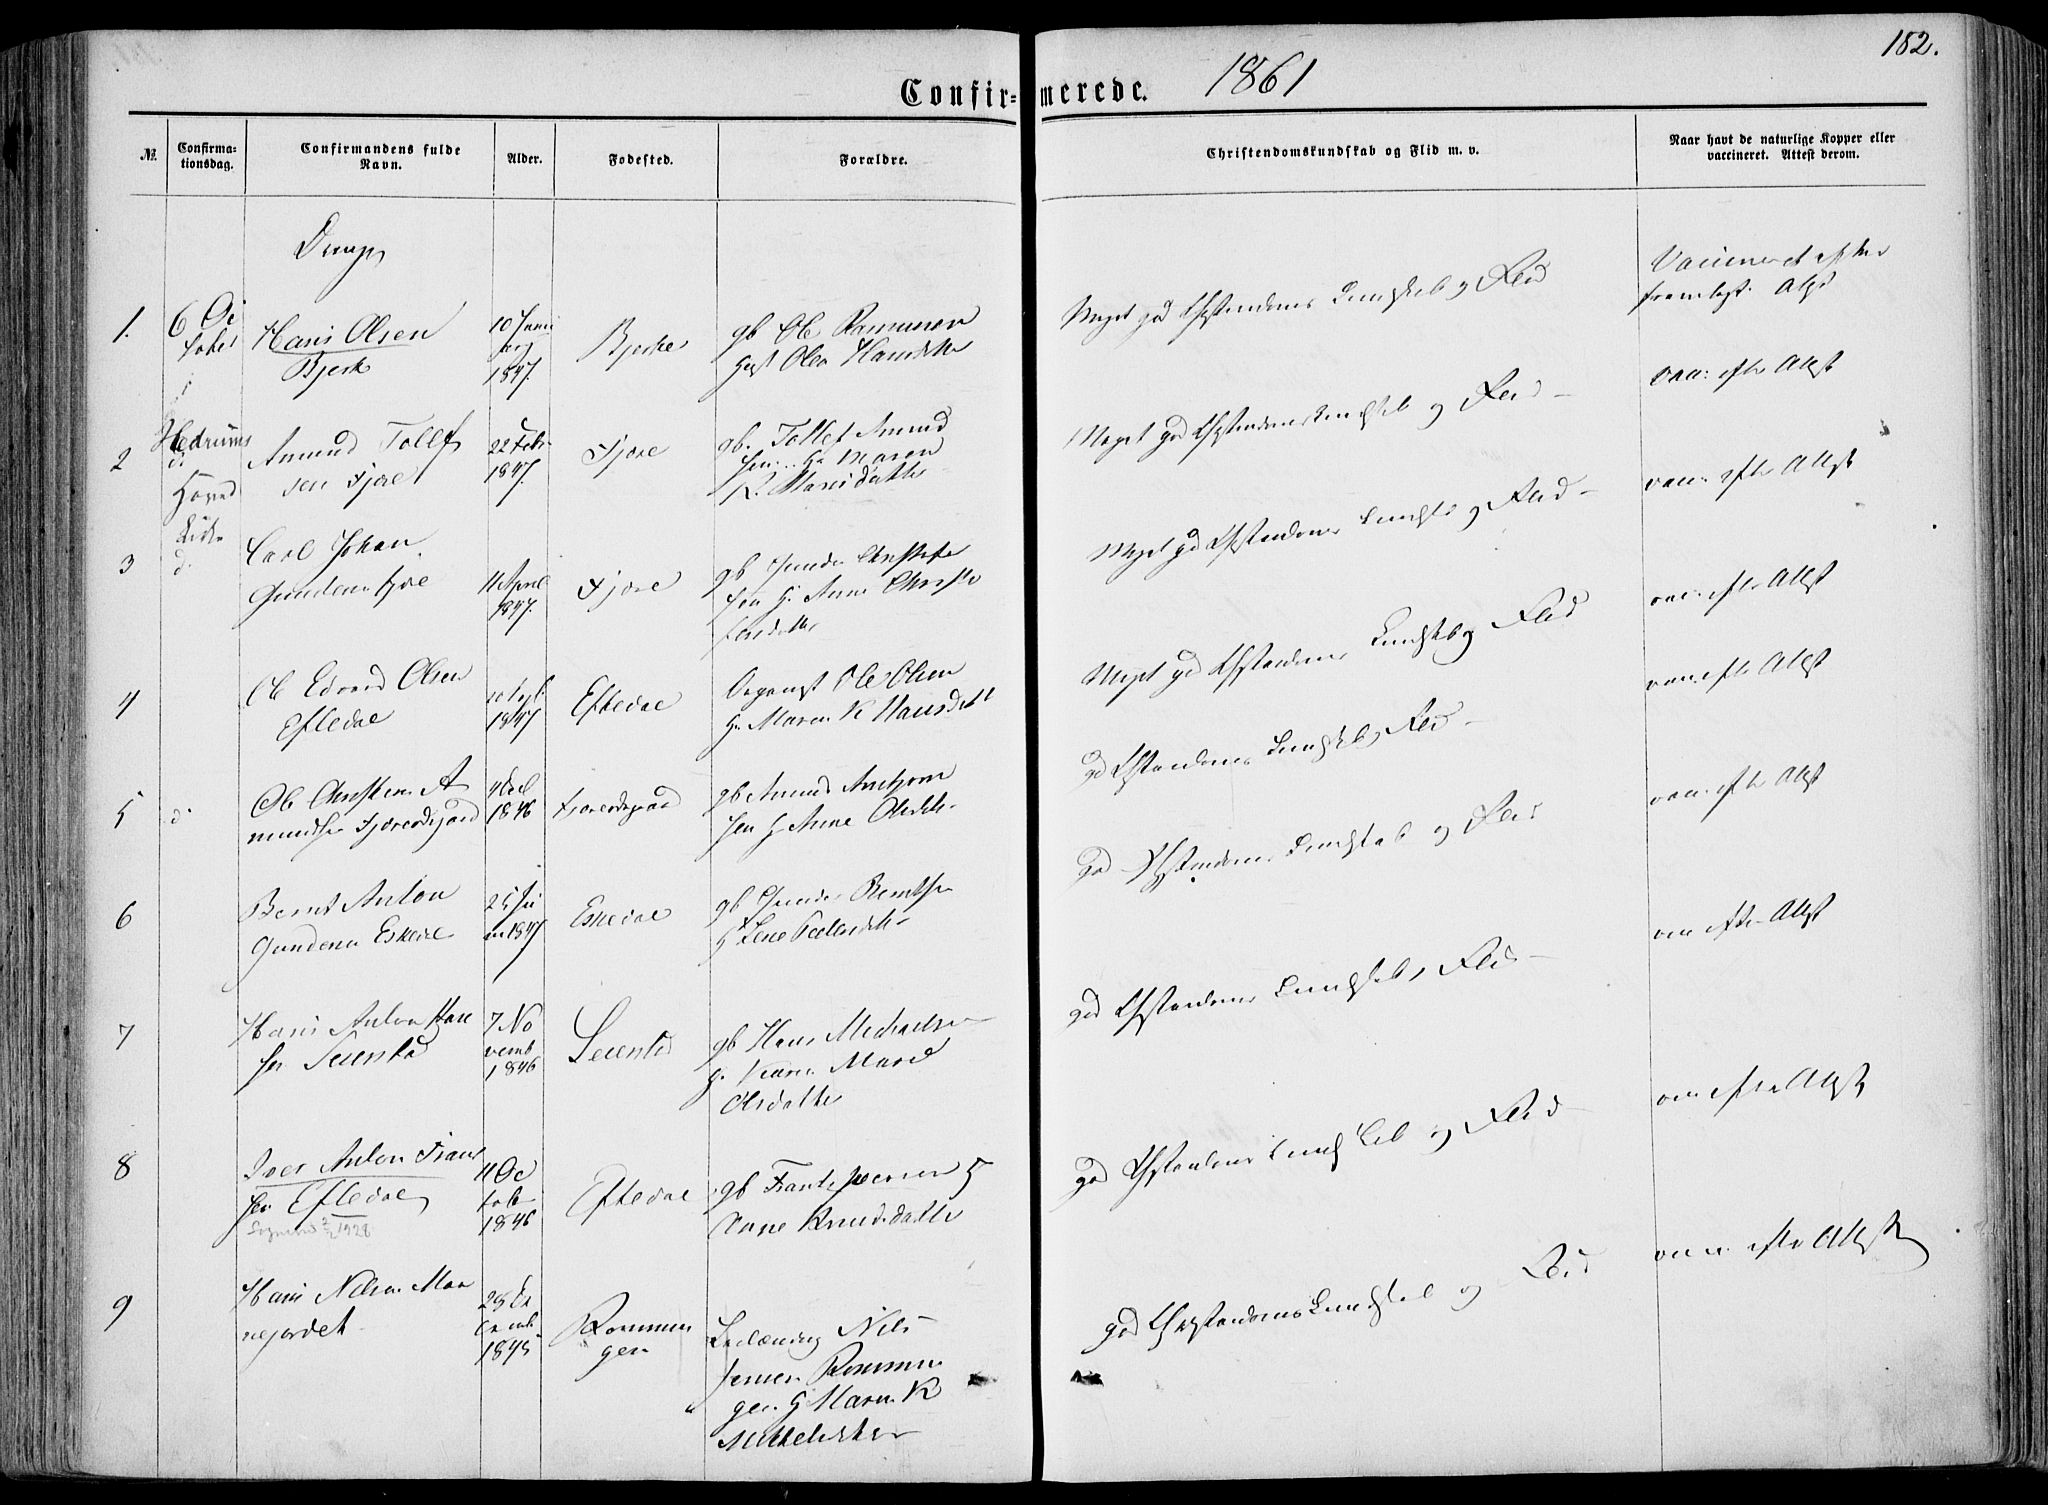 152.
Confirmerede. 1861
№
Confirmationsdag.
Confirmandens fulde Navn.
Alder.
Fødested.
Forældre.
Christendomskundskab og Flid m. v.
Naar havt de naturlige Kopper eller vaccineret. Attest derom.
Drenge
1.
6 Oc
tober
i
Hedrums
Hoved
Kirke
Hans Olsen
Bjerke
10 Janu
ar
1847.
Bjerke
gb Ole Rasmussen
Hansdatter
Meget god Christendoms Kundskab og Flid
Vaccineret efter
fremlagt Attest
2
d.
Amund Tollef
sen Fjære
22 Febr
1847.
Fjære
gb. Tollef Amund
sen Maren
K. Hansdatter
Meget god Christendomskundskab og Flid –
vacc. efter Attest
3
d.
Carl Johan
Gundersen Fjære
11 April
1847.
Fjære
gb Gunder Christofer
sen G. Anne Christo
fersdatter
Meget god Christendoms Kundskab og Flid –
vacc. efter Attest
4
Ole Edvard Olsen
Eftedal
1847
Eftedal
Ole Olsen
G. Maren K Hansdatter
Meget god Christendoms Kundskab og Flid
vacc. efter Attest
5
d
Ole Christian A
mundsen Fjæreødegaard
1846
Fjæreødegaard
gb Amund Arntzen
G Anne Olsdatter
god Christendoms Kundskab og Flid –
vacc. efter Attest
6
Bernt Anton
Gundersen Eskedal
25 Ju
ni 1847
Eskedal
gb Gunder Berntsen
G Lene Pedersdatter
god Christendoms Kundskab og Flid
vacc efter Attest
7
Hans Anton Han
sen Seiersted
7 No
vemb
1846
Seiersted
gb Hans Michaelsen
G. Karen Marie
Olsdatter
god Christendoms Kundskab og Flid –
vacc efter Attest
8
Iver Anton Frants
sen Eftedal
1928
11 Oc
tober
1846
Eftedal
gb Frants Iversen G
Anne Knudsdatter
god Christendoms Kundskab og Flid –
vacc efter Attest
9
Hans Nilsen Maa
nejordet
1845
Rømmin
gen
Nils
Jensen Rømmin
gen G Maren K
Mikkelsdatter
god Christendoms Kundskab og Flid
vacc. efter Attest